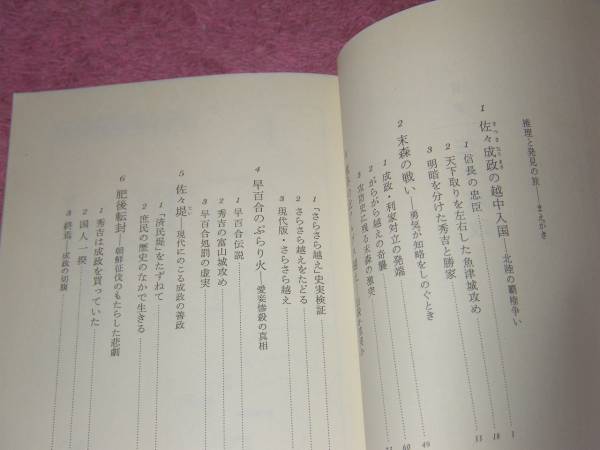 推理と発見の旅——まえがき
1 佐々成政の越中入国——北陸の覇権争い
1 信長の忠臣 1
2 天下取りを左右した魚津城攻め 18
3 明暗を分けた秀吉と勝家 33
2 末森の戦い——勇気が知略をしのぐとき
1 成政・利家対立の発端 49
2 がらがら越えの奇襲 60
3 攻防史に残る末森の激突
1 「さらさら越え」史実検証
2 さらさら越えをたどる
3 現代版・さらさら越え
4 早百合のぶらり火——愛妾惨殺の真相
1 早百合伝説
2 秀吉の富山城攻め
3 早百合処罰の虚実
5 佐々堤——現代にのこる成政の善政
1 「済民堤」をたずねて
2 庶民の歴史のなかで生きる
6 肥後転封——朝鮮征伐のもたらした悲劇
1 秀吉は成政を買っていた
2 国人一揆
3 終焉——成政の切腹